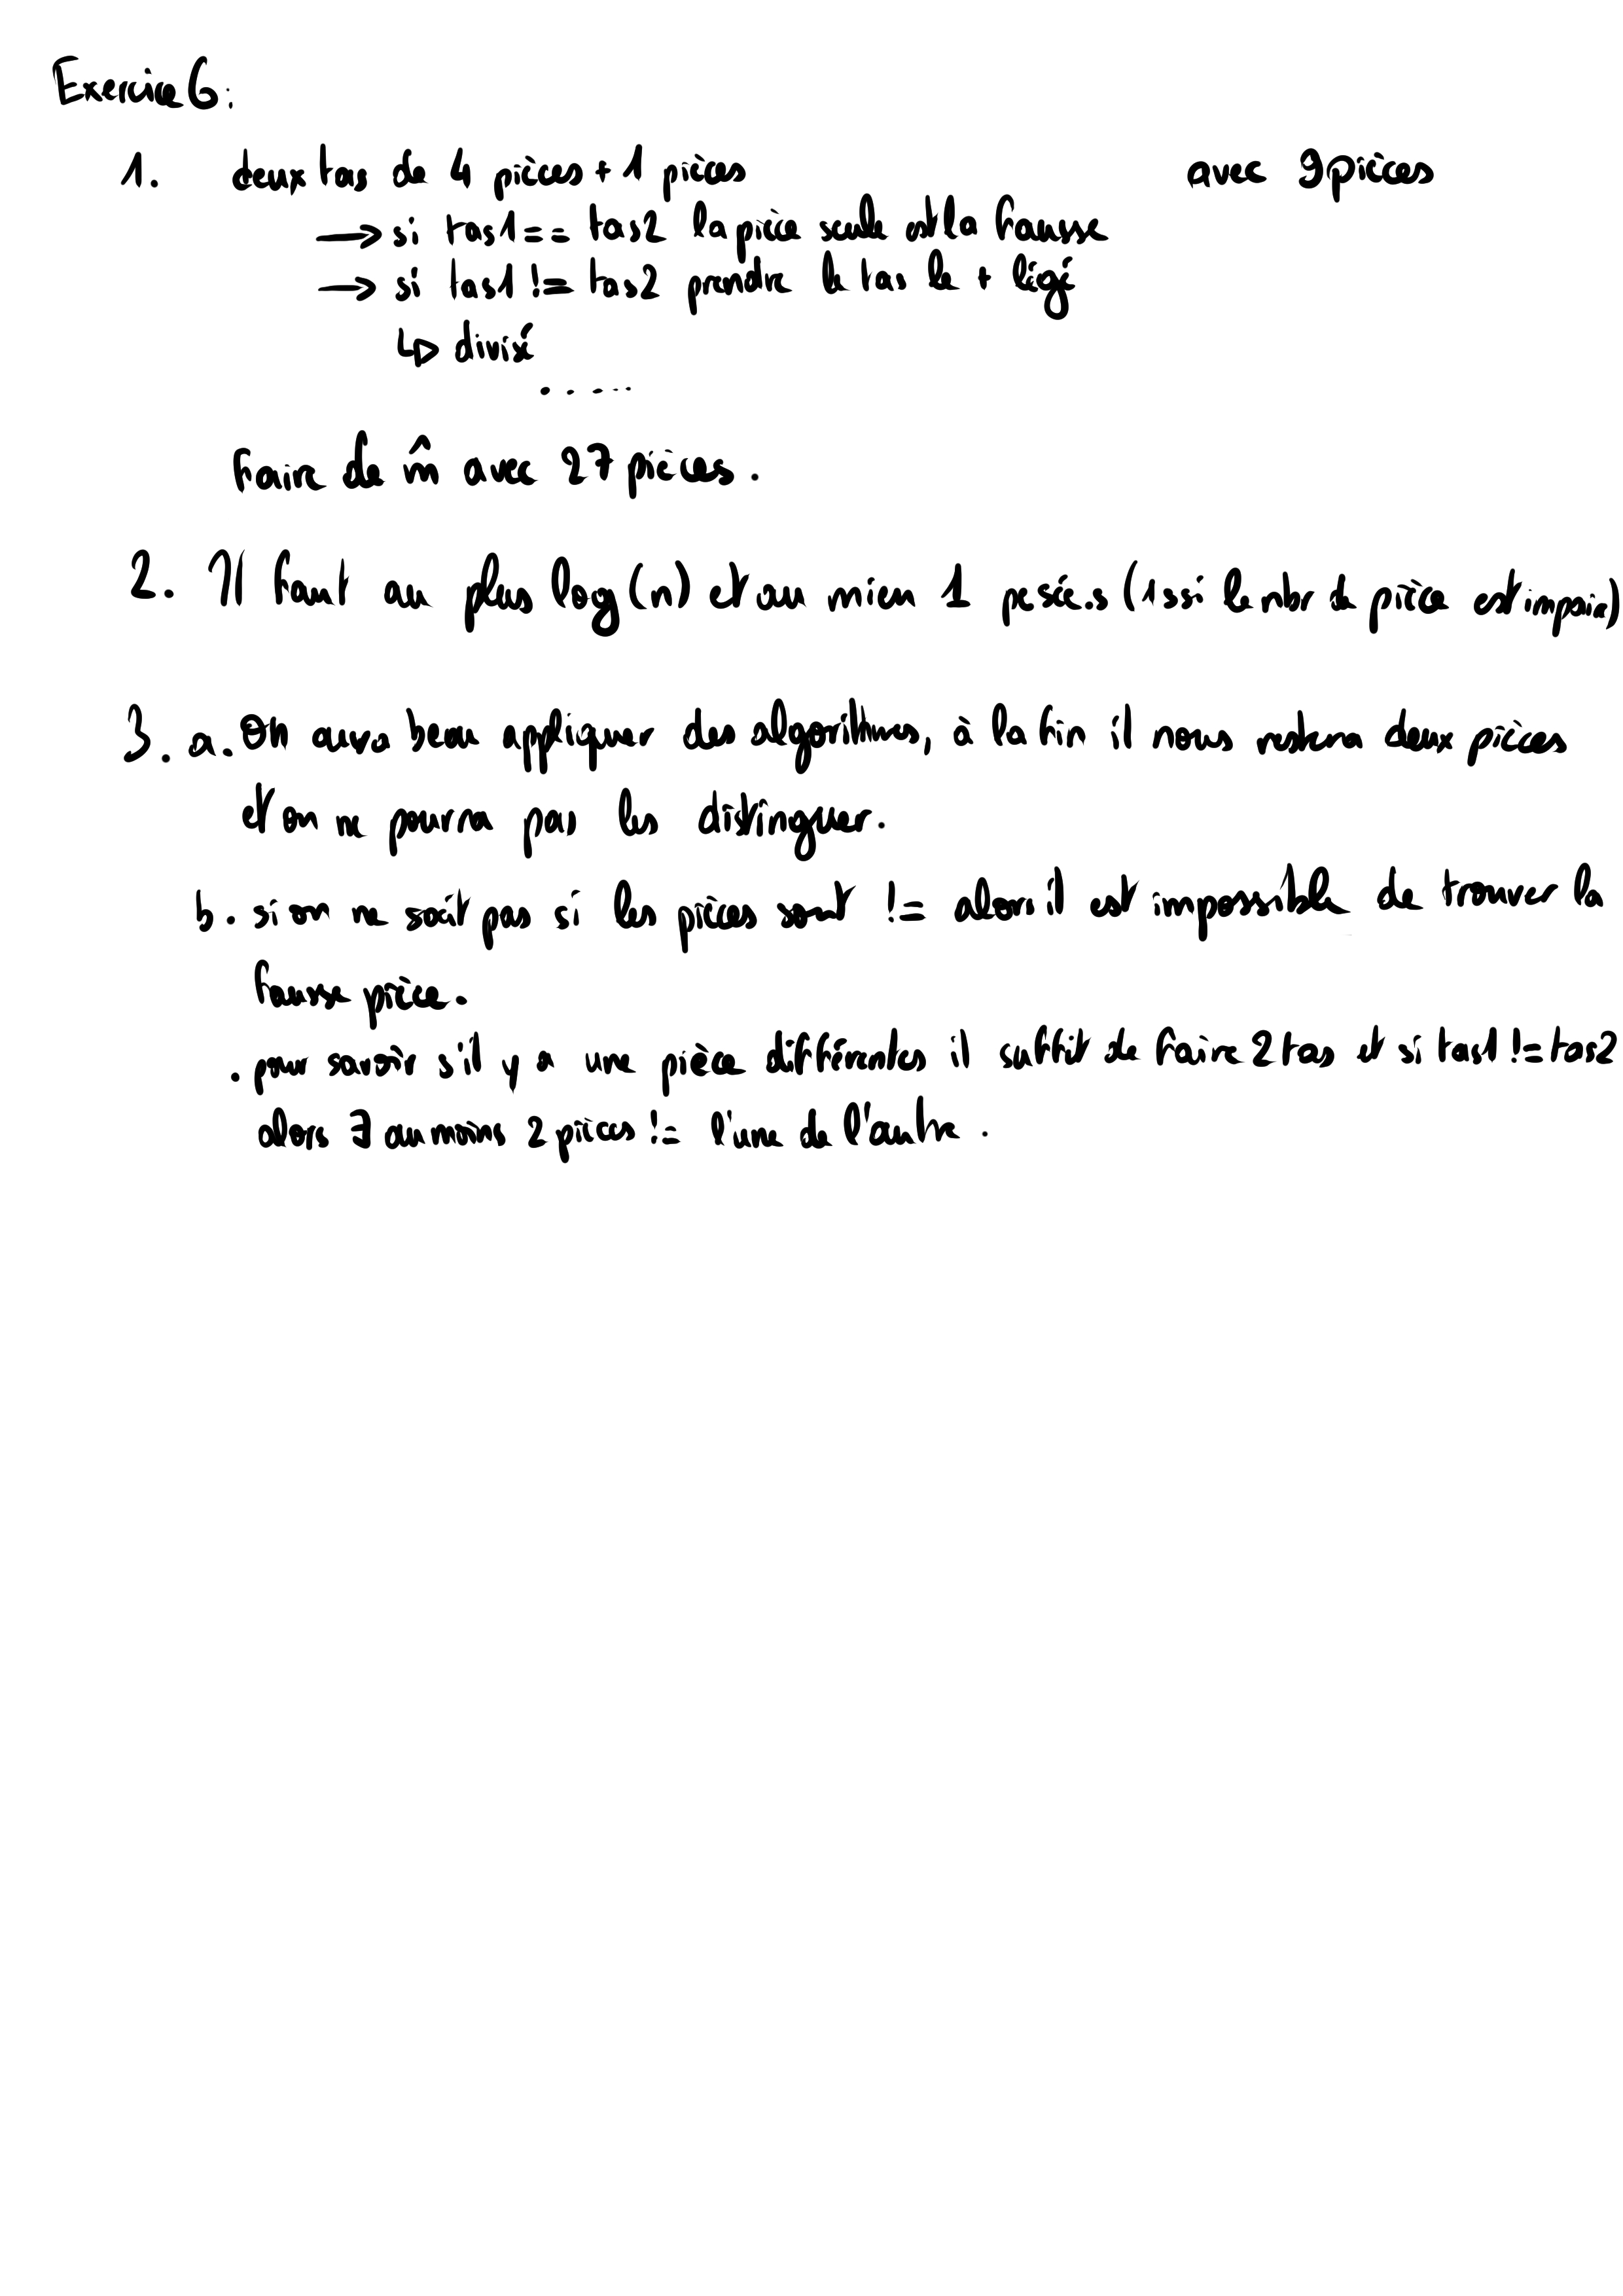 Exercice 6 :
1. deux tas de 4 pièces + 1 pièces avec 9 pièces
→ si tas1 == tas2 la pièce seule est la fausse
→ si tas1 != tas2 prendre le tas le + légé
↳ divisé
.....
Faire de m̂ avec 27 pièces.
2. Il faut au plus log(n) et au mieu 1 pesée.s (1 ssi le nbr de pièce est impair)
3. a. On aura beau appliquer des algorithmes, à la fin il nous restera deux pièces
et on ne pourra pas les distinguer.
b. si on ne sait pas si les pièces sont != alors il est impossible de trouver la
fausse pièce.
. pour savoir s'il y a une pièce différentes il suffit de faire 2 tas et si tas1 != tas2
alors ∃ au moins 2 pièces != l'une de l'autre.